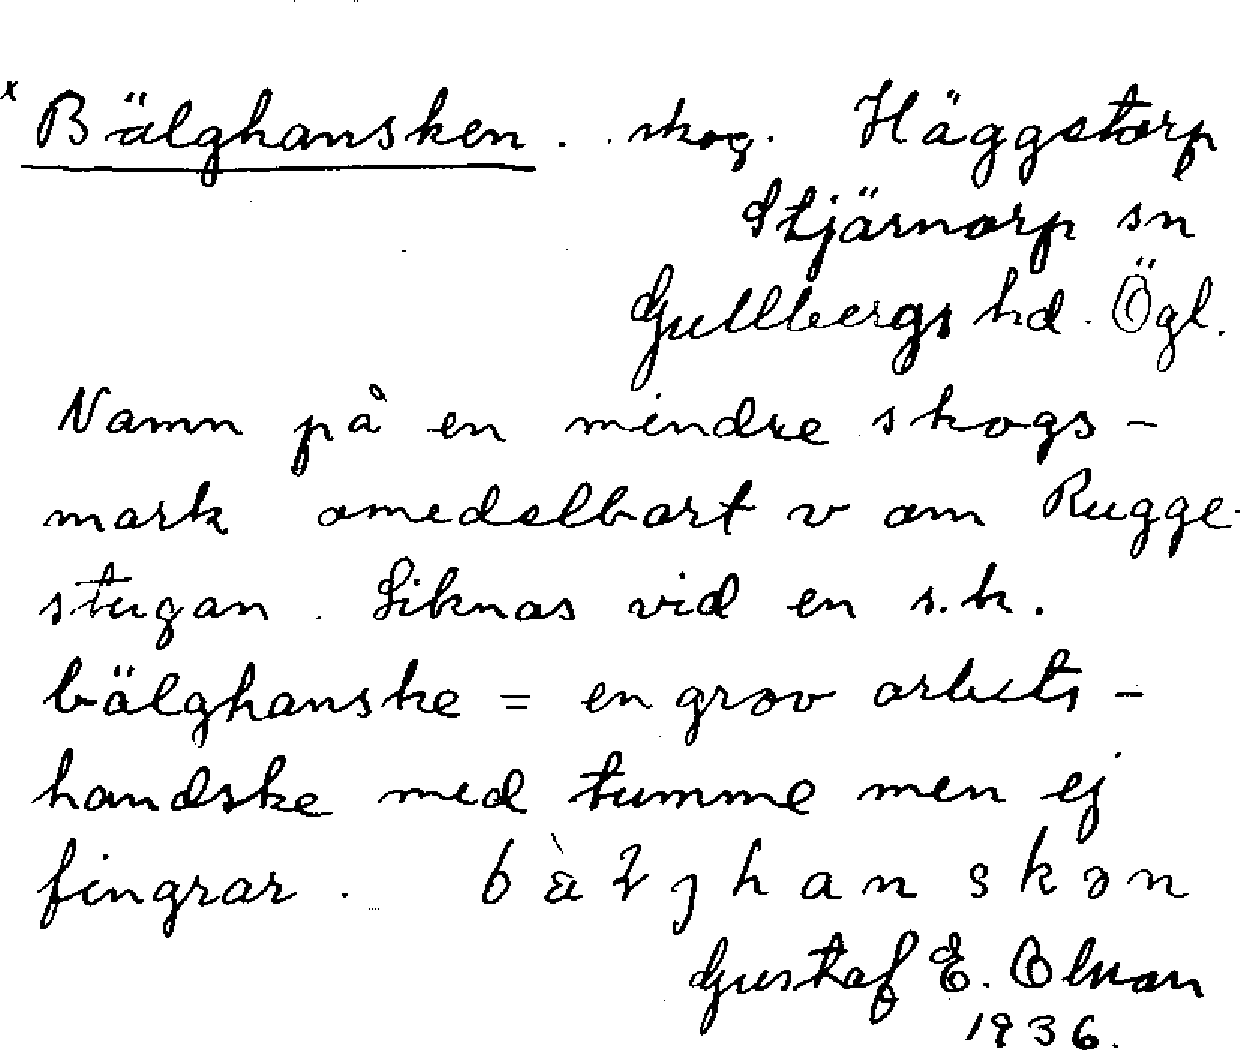 x Bälghansken . . skog. Häggstorp
Stjärnorp sn
Gullbergs hd. Ögl.
Namn på en mindre skogs-
mark omedelbart v om Rugge-
stugan. Liknas vid en s.k.
bälghanske = en grov arbets-
handske med tumme men ej
fingrar.
Gustaf E. Olson
1936.